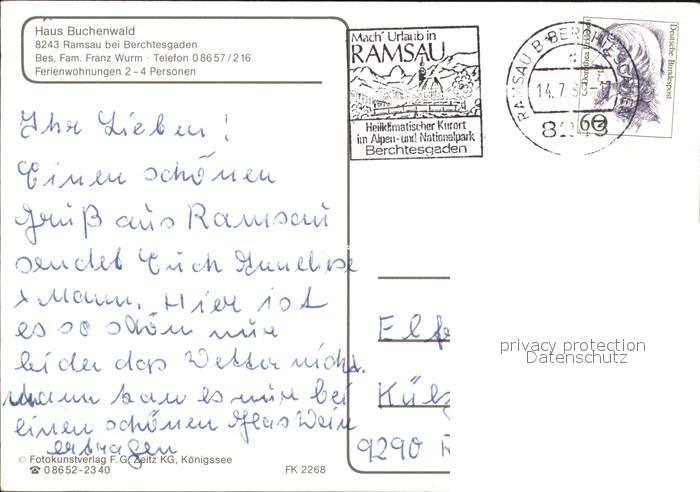 Haus Buchenwald
8243 Ramsau bei Berchtesgaden
Bes. Fam. Franz Wurm · Telefon 08657/216
Ferienwohnungen 2-4 Personen
Ihr Lieben!
Einen schönen
Gruß aus Ramsau
sendet Euch Anneliese
+ Mann. Hier ist
es so schön nur
leider das Wetter nicht.
Mann kan es nur bei
einen schönen Glas Wein
ertragen
© Fotokunstverlag F.G. Zeitz KG, Königssee
☎ 08652-2340
FK 2268
Mach' Urlaub in
RAMSAU
Heilklimatischer Kurort
im Alpen- und Nationalpark
Berchtesgaden
RAMSAU B BERCHTESGADEN
14.7
8243
Deutsche Bundespost
60
Elf
Külz
9290 R
privacy protection
Datenschutz